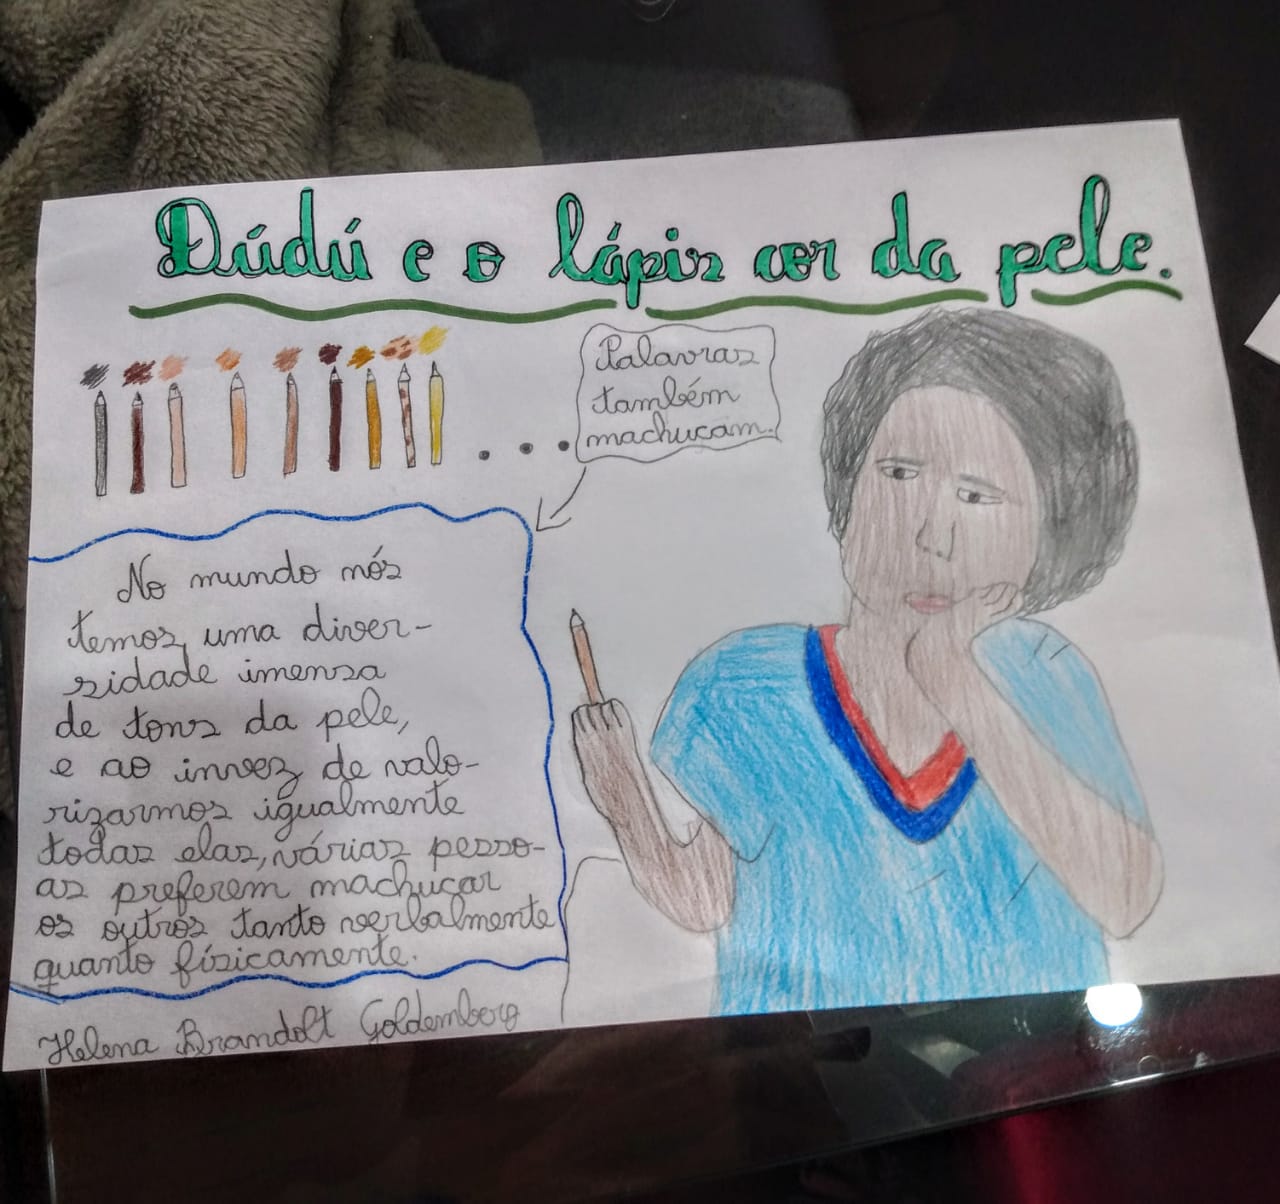 Dúdú e o lápis cor da pele.
Palavras
também
machucam.
No mundo nós
temos uma diver-
sidade imensa
de tons da pele,
e ao invez de valo-
rizarmos igualmente
todas elas, várias pesso-
as preferem machucar
os outros tanto verbalmente
quanto físicamente.
Helena Brandolt Goldemberg